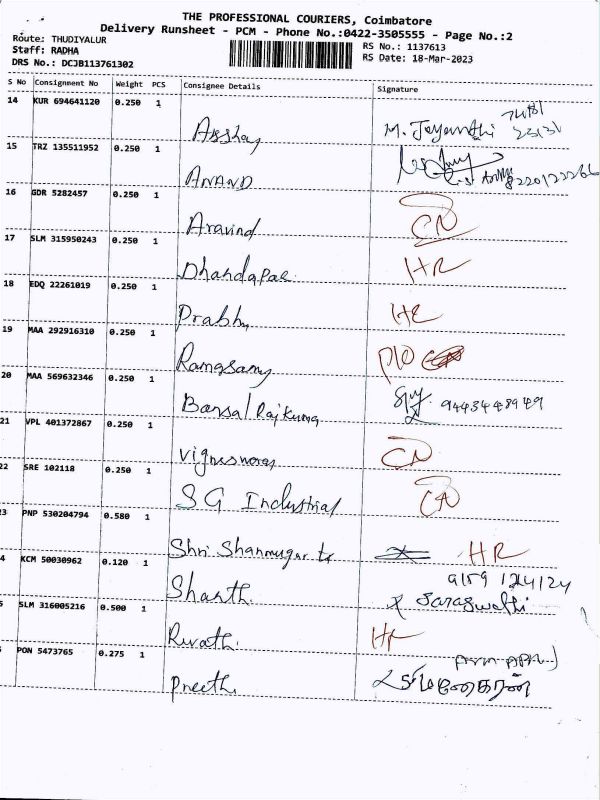 THE PROFESSIONAL COURIERS, Coimbatore
Delivery Runsheet - PCM - Phone No.:0422-3505555 - Page No.:2
Route: THUDIYALUR
Staff: RADHA
DRS No.: DCJB113761302
RS No.: 1137613
RS Date: 18-Mar-2023
S No Consignment No Weight PCS Consignee Details Signature
14 KUR 694641120 0.250 1
Akshay M. Jeyanthi
15 TRZ 135511952 0.250 1
ANAND
16 GDR 5282457 0.250 1
Aravind CN
17 SLM 315950243 0.250 1
Dhandapal HR
18 EDQ 22261019 0.250 1
Prabhu HR
19 MAA 292916310 0.250 1
Ramasamy P/O
20 MAA 569632346 0.250 1
Bansal Rajkumar 9443448949
21 VPL 401372867 0.250 1
Vignesware CN
22 SRE 102118 0.250 1
SG Industrial CN
23 PNP 530204794 0.580 1
Shri Shanmugar tx HR
4 KCM 50030962 0.120 1
9159 124124
Sharth Saraswathi
5 SLM 316005216 0.500 1
Revath HR
PON 5473765 0.275 1
Preeth